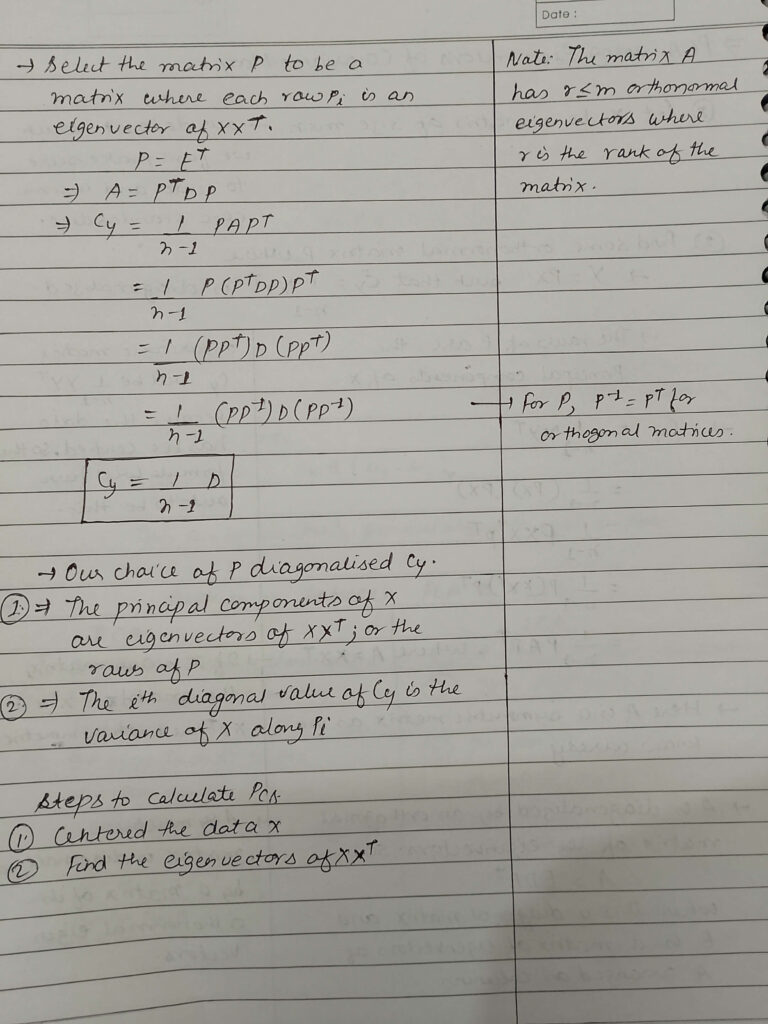 Date :
→ Select the matrix P to be a
matrix where each row Pi is an
eigenvector of XXᵀ.
P = Eᵀ
⇒ A = PᵀDP
⇒ Cy = 1/(n-1) PAPᵀ
= 1/(n-1) P(PᵀDP)Pᵀ
= 1/(n-1) (PPᵀ)D(PPᵀ)
= 1/(n-1) (PP⁻¹)D(PP⁻¹)
Cy = 1/(n-1) D
→ Our choice of P diagonalised Cy.
① ⇒ The principal components of X
are eigenvectors of XXᵀ; or the
rows of P
② ⇒ The ith diagonal value of Cy is the
variance of X along Pi
Steps to calculate PCA
① Centered the data X
② Find the eigenvectors of XXᵀ
Note: The matrix A
has r≤m orthonormal
eigenvectors where
r is the rank of the
matrix.
→ For P, P⁻¹ = Pᵀ for
orthogonal matrices.